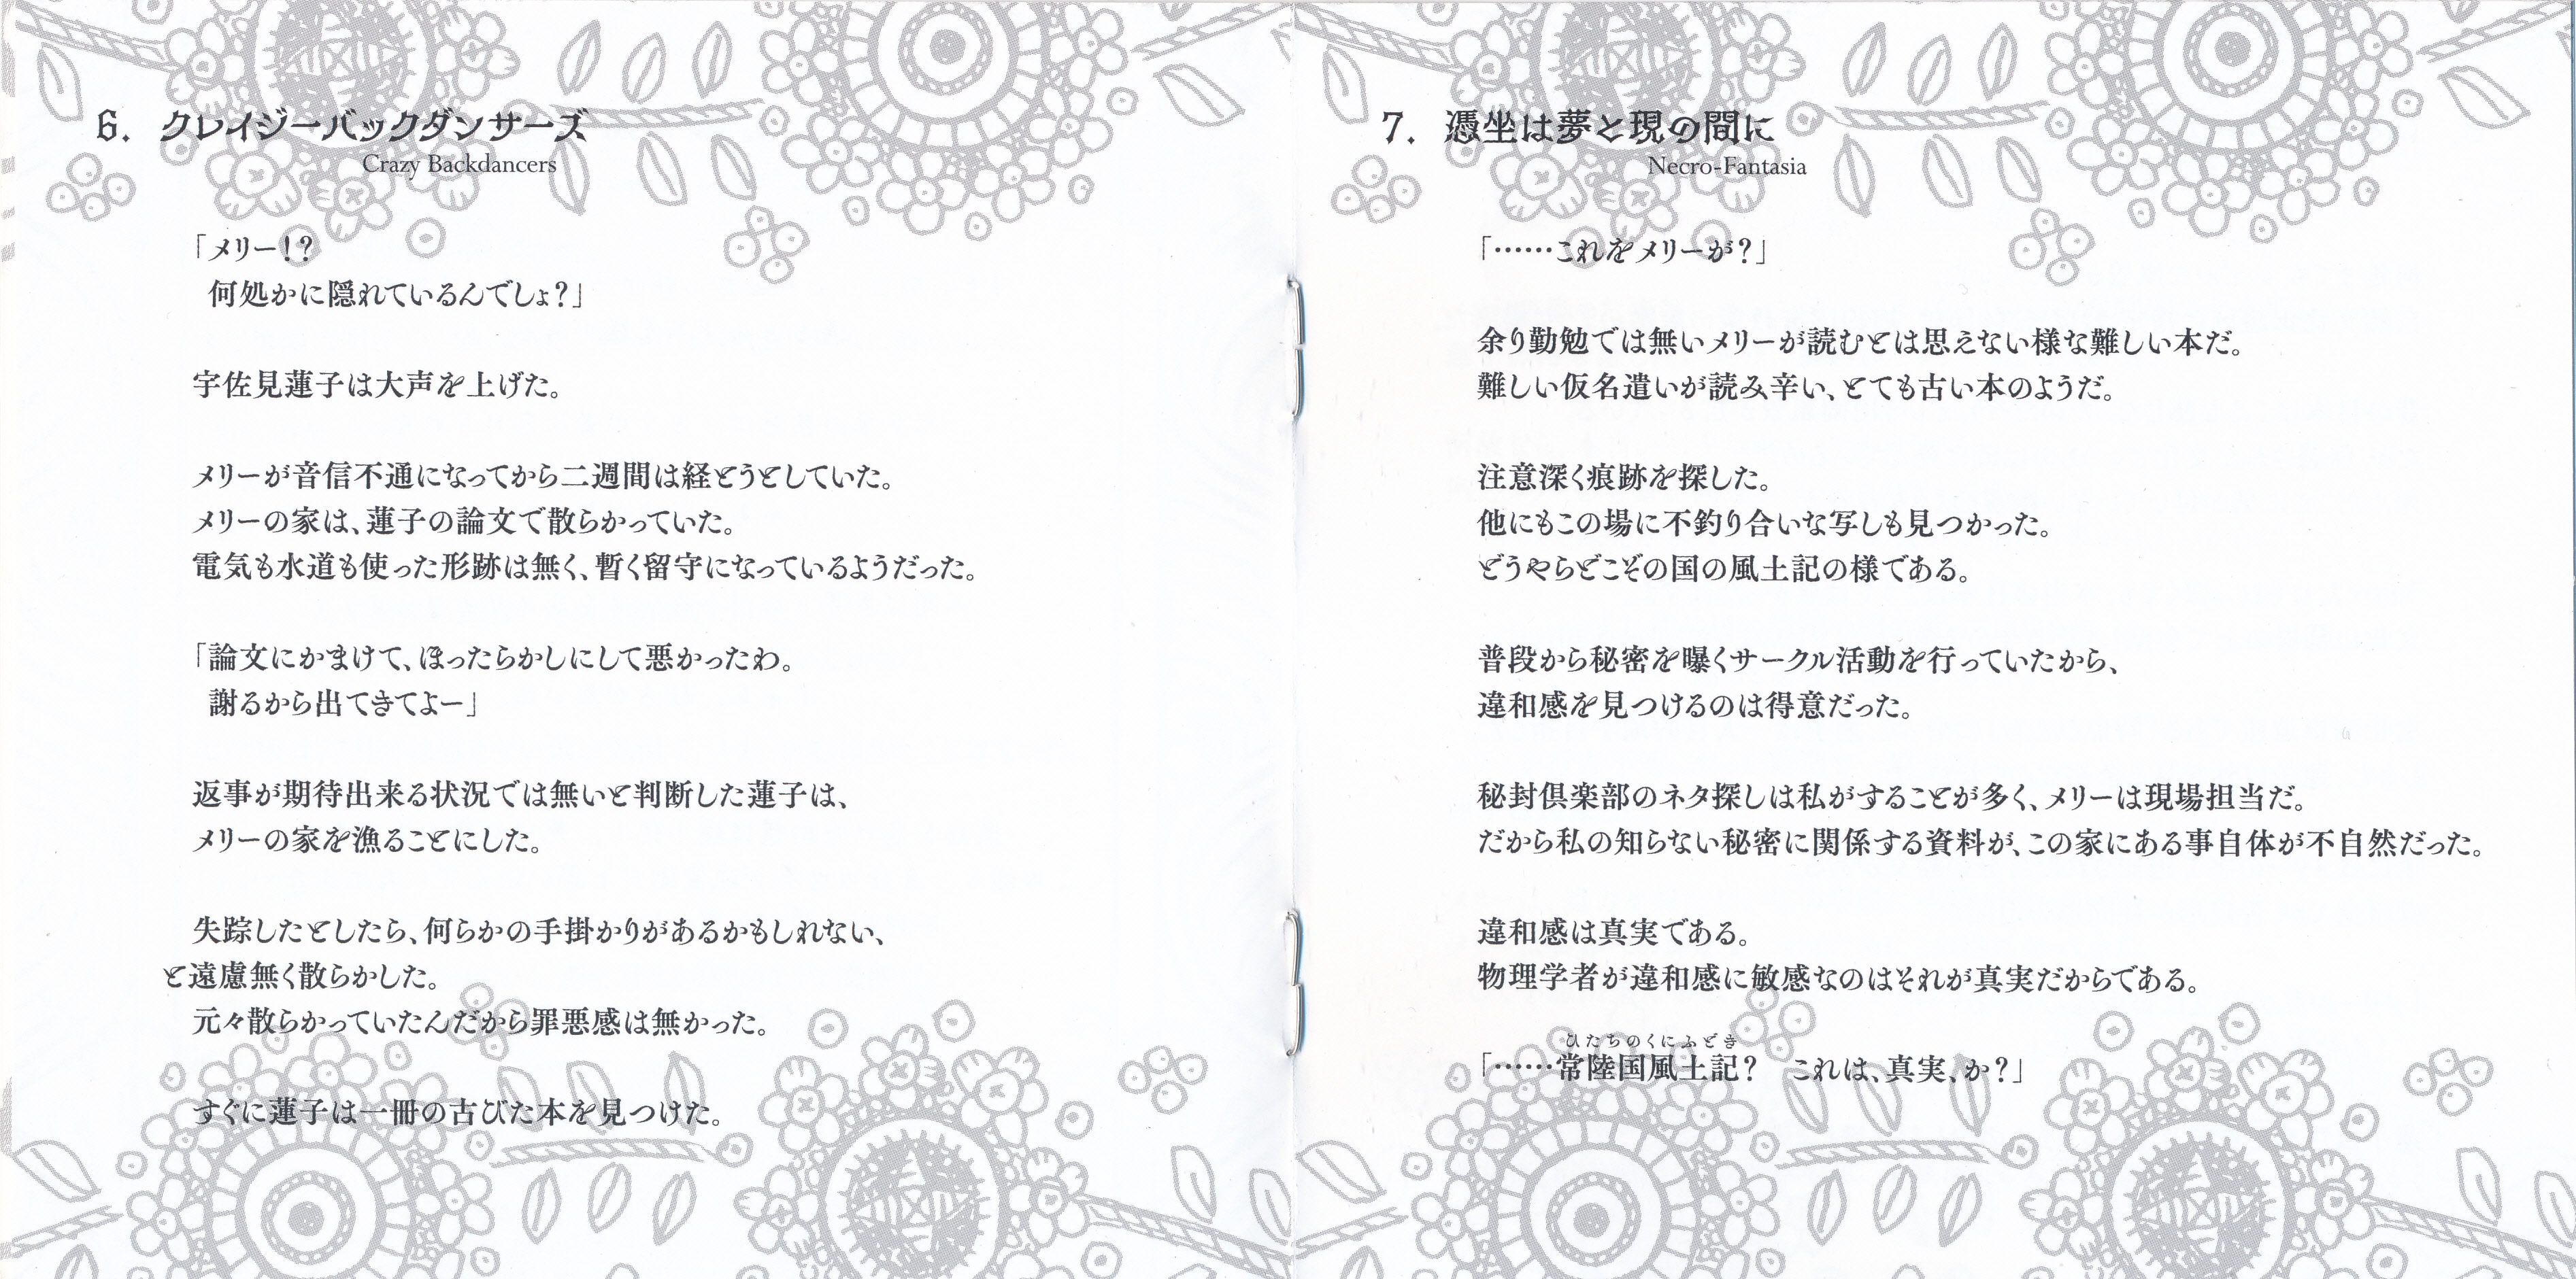 6. クレイジーバックダンサーズ
Crazy Backdancers
「メリー!?
何処かに隠れているんでしょ?」
宇佐見蓮子は大声を上げた。
メリーが音信不通になってから二週間は経とうとしていた。
メリーの家は、蓮子の論文で散らかっていた。
電気も水道も使った形跡は無く、暫く留守になっているようだった。
「論文にかまけて、ほったらかしにして悪かったわ。
謝るから出てきてよー」
返事が期待出来る状況では無いと判断した蓮子は、
メリーの家を漁ることにした。
失踪したとしたら、何らかの手掛かりがあるかもしれない、
と遠慮無く散らかした。
元々散らかっていたんだから罪悪感は無かった。
すぐに蓮子は一冊の古びた本を見つけた。
7. 憑坐は夢と現の間に
Necro-Fantasia
「……これをメリーが?」
余り勤勉では無いメリーが読むとは思えない様な難しい本だ。
難しい仮名遣いが読み辛い、とても古い本のようだ。
注意深く痕跡を探した。
他にもこの場に不釣り合いな写しも見つかった。
どうやらどこぞの国の風土記の様である。
普段から秘密を曝くサークル活動を行っていたから、
違和感を見つけるのは得意だった。
秘封倶楽部のネタ探しは私がすることが多く、メリーは現場担当だ。
だから私の知らない秘密に関係する資料が、この家にある事自体が不自然だった。
違和感は真実である。
物理学者が違和感に敏感なのはそれが真実だからである。
ひたちのくにふどき
「……常陸国風土記?　これは、真実、か?」